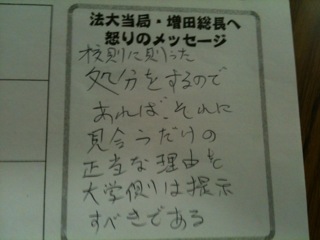 法大当局・増田総長へ
怒りのメッセージ
校則に則った
処分をするので
あれば、それに
見合うだけの
正当な理由を
大学側は提示
すべきである